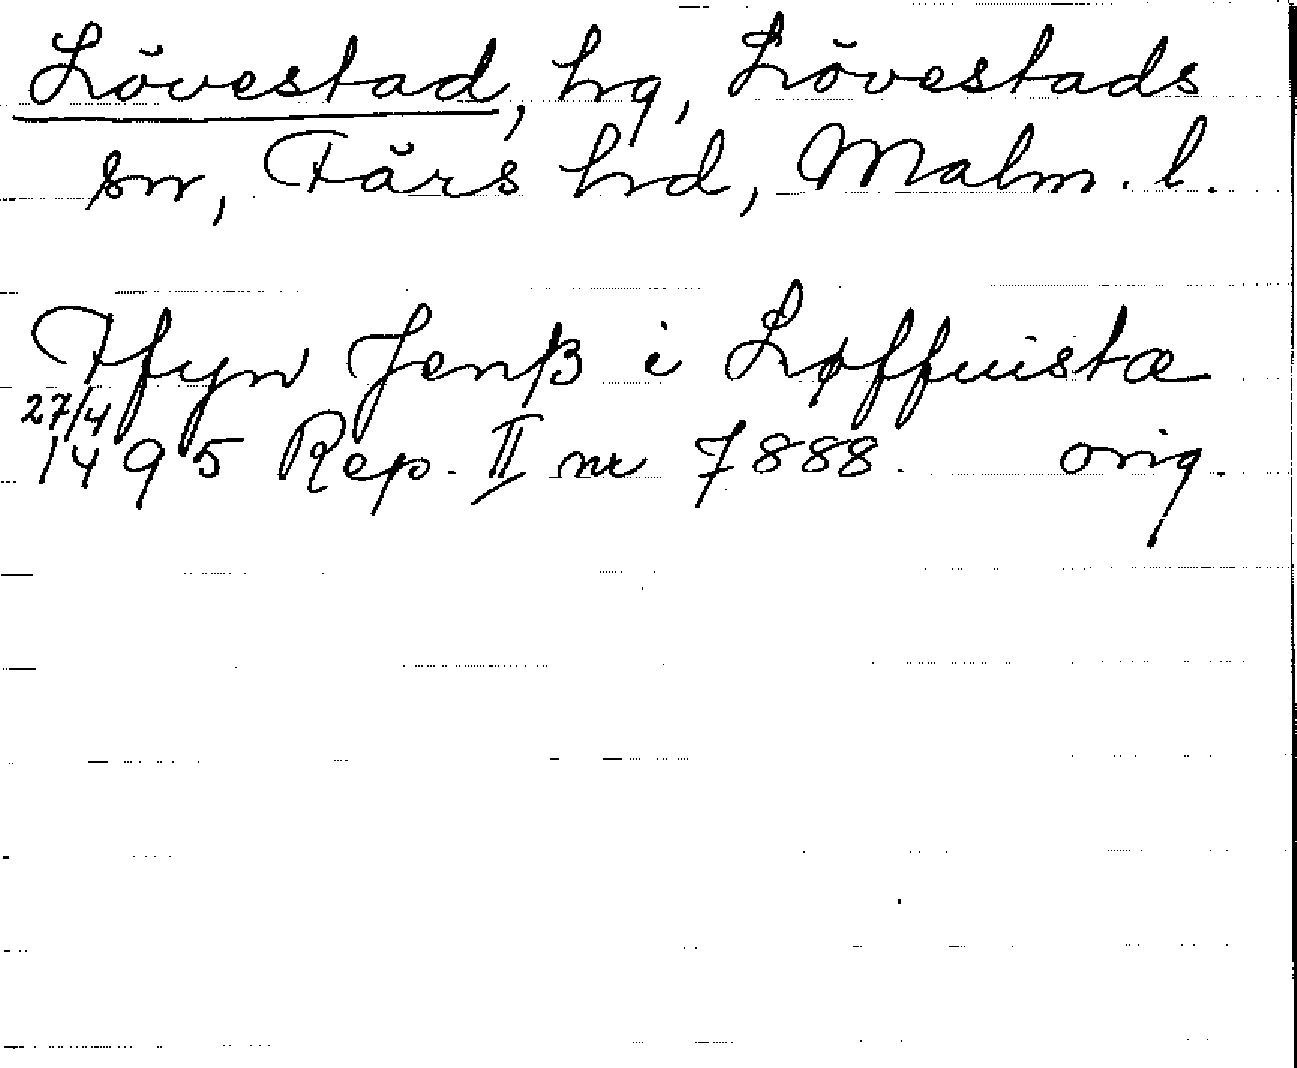 Lövestad, hg, Lövestads
sn, Färs hd, Malm. l.
Ffyn Jenß i Løffuistæ
27/4
1495 Rep. II nr 7888. orig.